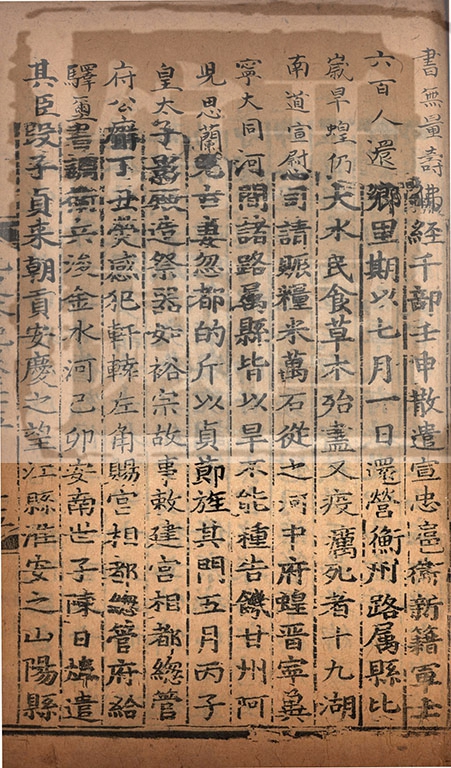 書無量壽佛經千部壬申散遣宣忠扈衛新籍軍士
六百人還鄉里期以七月一日還營衡州路属縣比
嵗旱蝗仍大水民食草木殆盡又疫癘死者十九湖
南道宣慰司請賑糧米萬石從之河中府蝗晉寧冀
寧大同河間諸路属縣皆以旱不能種告饑甘州阿
児思蘭免古妻忽都的斤以貞節旌其門五月丙子
皇太子影殿造祭器如裕宗故事敕建宮相都緫管
府公廨丁丑熒惑犯軒轅左角賜宮相都緫管府給
驛璽書調衛兵浚金水河己卯安南世子陳日㷆遣
其臣段子貞来朝貢安慶之望江縣淮安之山陽縣